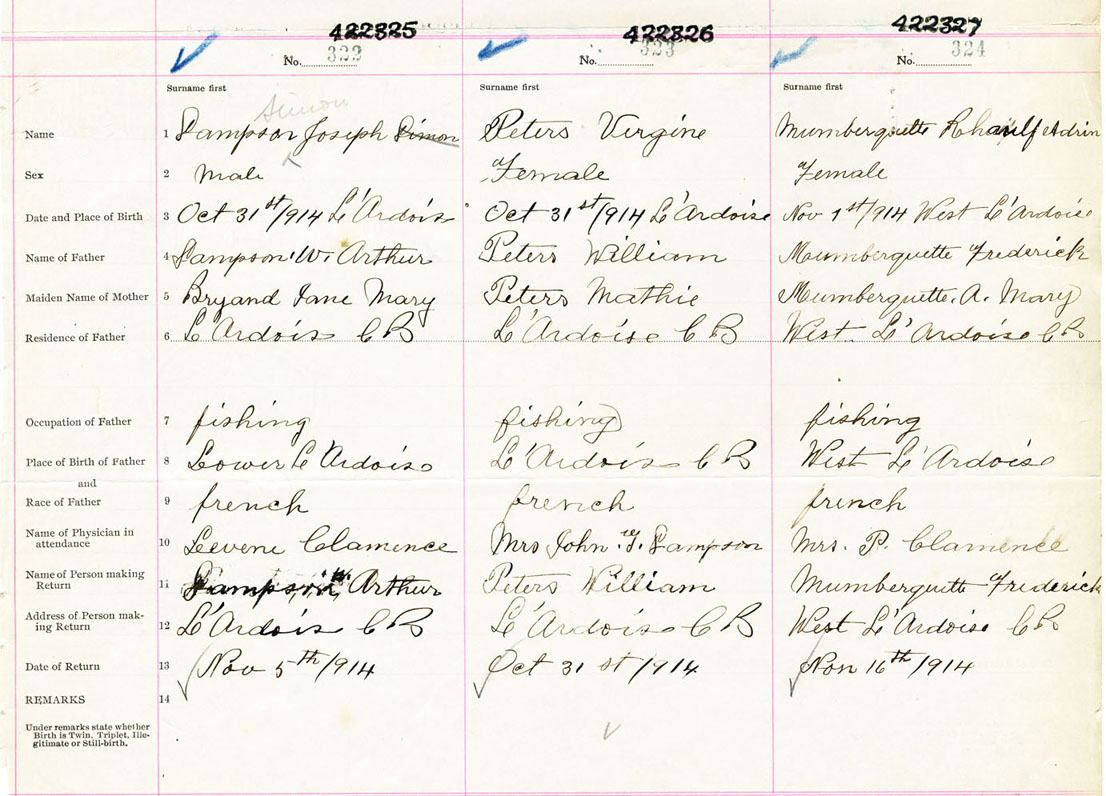 422325 422326 422327
No. 322 No. 323 No. 324
Surname first Surname first Surname first
Simon
Name 1 Sampson Joseph Simon Peters Virgine Mumberquette Adrin
Sex 2 Male Female Female
Date and Place of Birth 3 Oct 31st/914 L'Ardois Oct 31st/914 L'Ardoise Nov 1st/914 West L'Ardoise
Name of Father 4 Sampson W. Arthur Peters William Mumberquette Frederick
Maiden Name of Mother 5 Bryand Jane Mary Peters Mathie Mumberquette. A. Mary
Residence of Father 6 L'Ardois C B L'Ardoise C B West L'Ardoise C B
Occupation of Father 7 fishing fishing fishing
Place of Birth of Father 8 Lower L'Ardoise L'Ardois C B West L'Ardoise
and
Race of Father 9 french french french
Name of Physician in
attendance 10 Levene Clamence Mrs John T. Sampson Mrs. P. Clamence
Name of Person making
Return 11 Sampson W. Arthur Peters William Mumberquette Frederick
Address of Person mak-
ing Return 12 L'Ardois C B L'Ardois C B West L'Ardoise C B
Date of Return 13 Nov 5th/914 Oct 31st/914 Nov 16th/914
REMARKS 14
Under remarks state whether
Birth is Twin, Triplet, Ille-
gitimate or Still-birth.